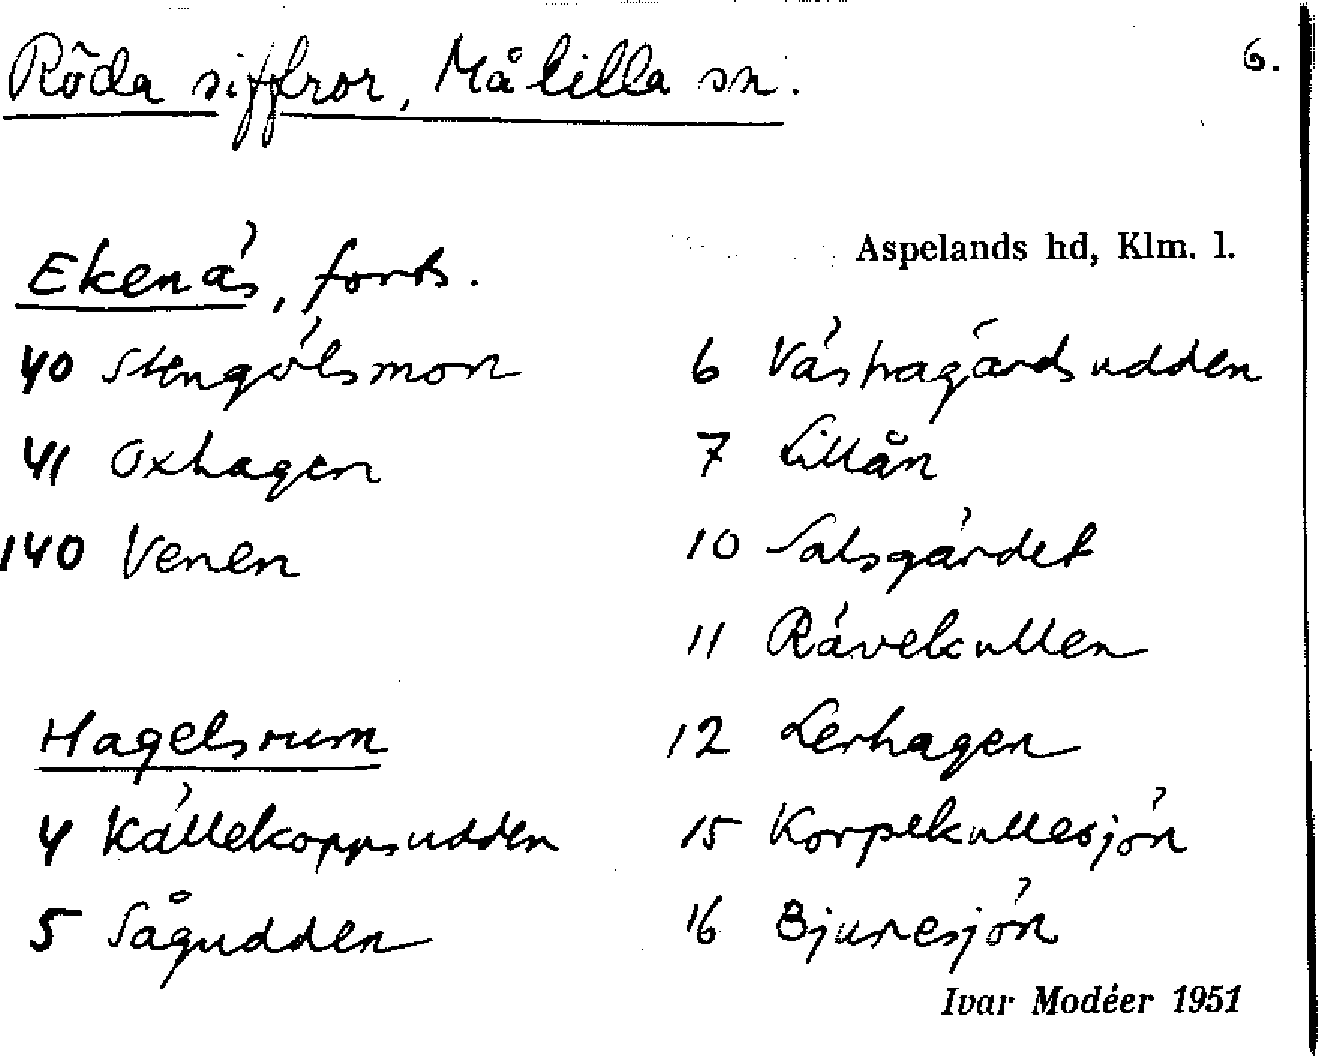 Röda siffror, Målilla sn.
6.
Aspelands hd, Klm. l.
Ekenäs, forts.
40 Stengölsmon
41 Oxhagen
140 Venen
Hagelsrum
4 Källekoppsudden
5 Sågudden
6 Västragärdsudden
7 Lillån
10 Salsgärdet
11 Rävekullen
12 Lerhagen
15 Korpekullesjön
16 Bjuresjön
Ivar Modéer 1951